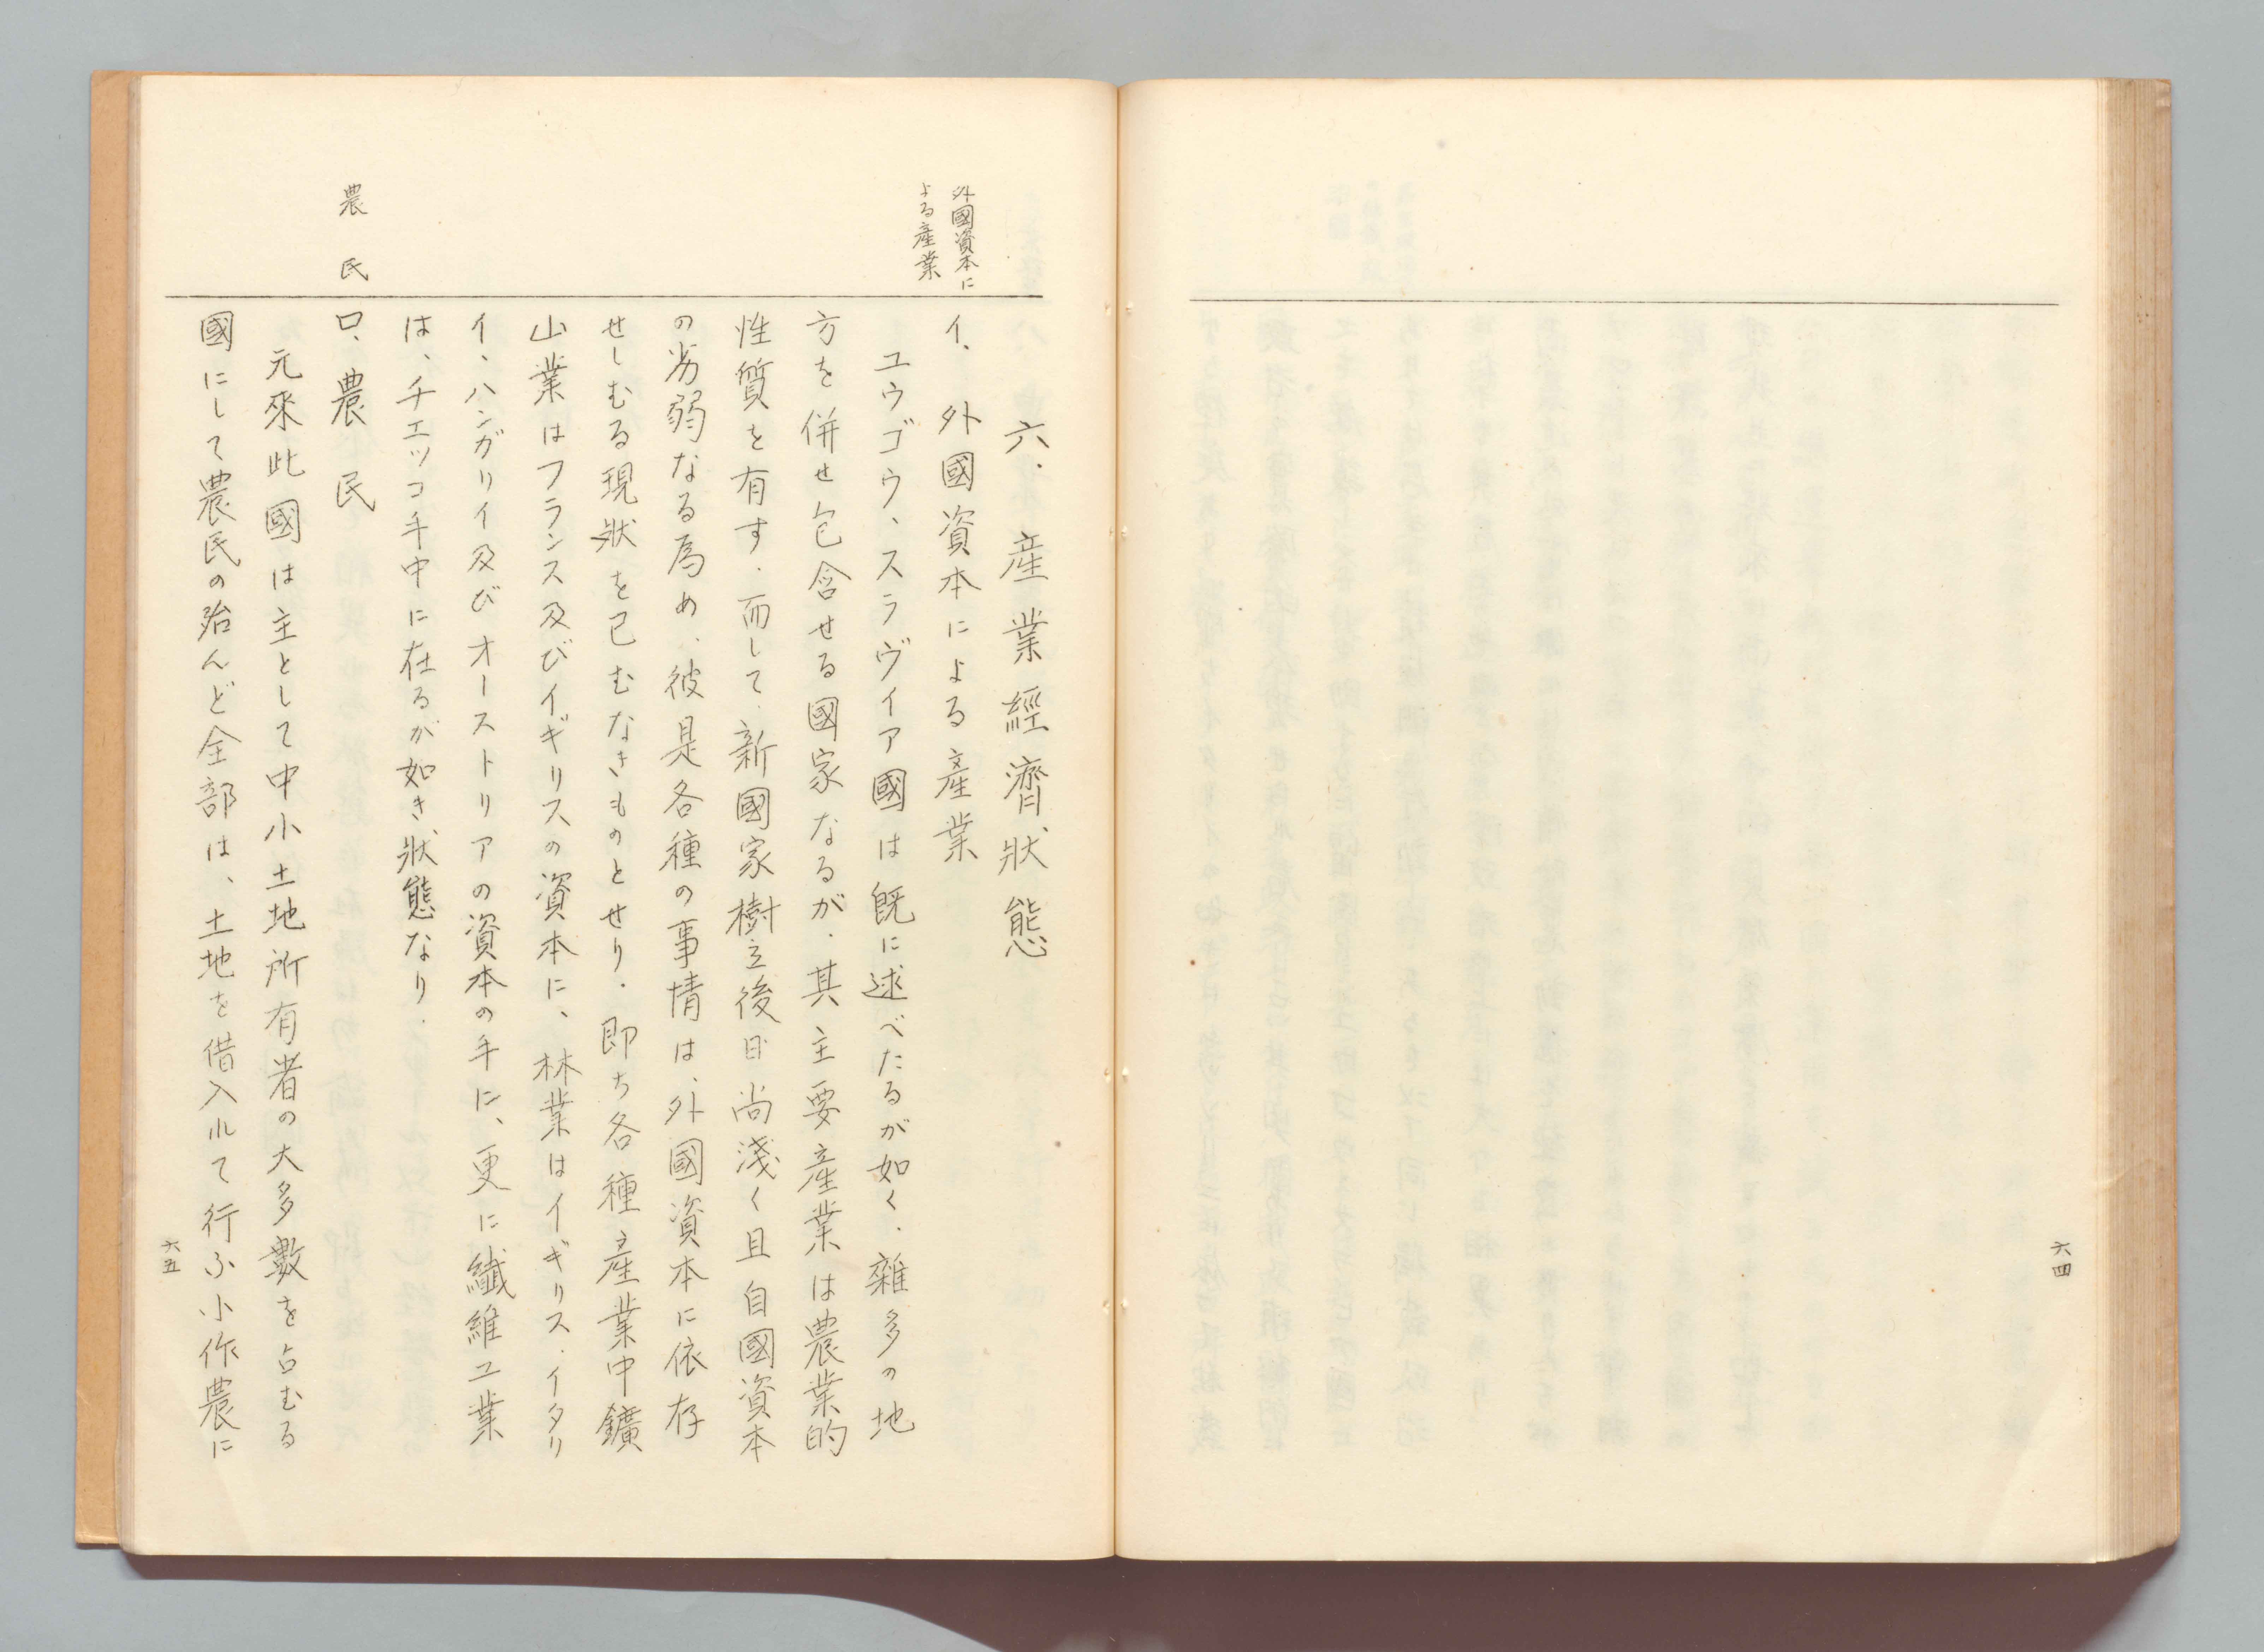 六四
外國資本に
よる產業
六．產業經濟狀態
イ．外國資本による產業
ユウゴウ、スラヴィア國は既に逑べたるが如く．雜多の地
方を併せ包含せる國家なるが．其主要產業は農業的
性質を有す．而して新國家樹立後日尚淺く且自國資本
の劣弱なる爲め、彼是各種の事情は、外國資本に依存
せしむる現狀を已むなきものとせり．即ち各種產業中鑛
山業はフランス及びイギリスの資本に、林業はイギリス．イタリ
イ、ハンガリイ及びオーストリアの資本の手に、更に纎維工業
は、チエッコ手中に在るが如き狀態なり．
農民
ロ．農民
元來此國は主として中小土地所有者の大多數を占むる
國にして農民の殆んど全部は、土地を借入ルて行ふ小作農に
六五